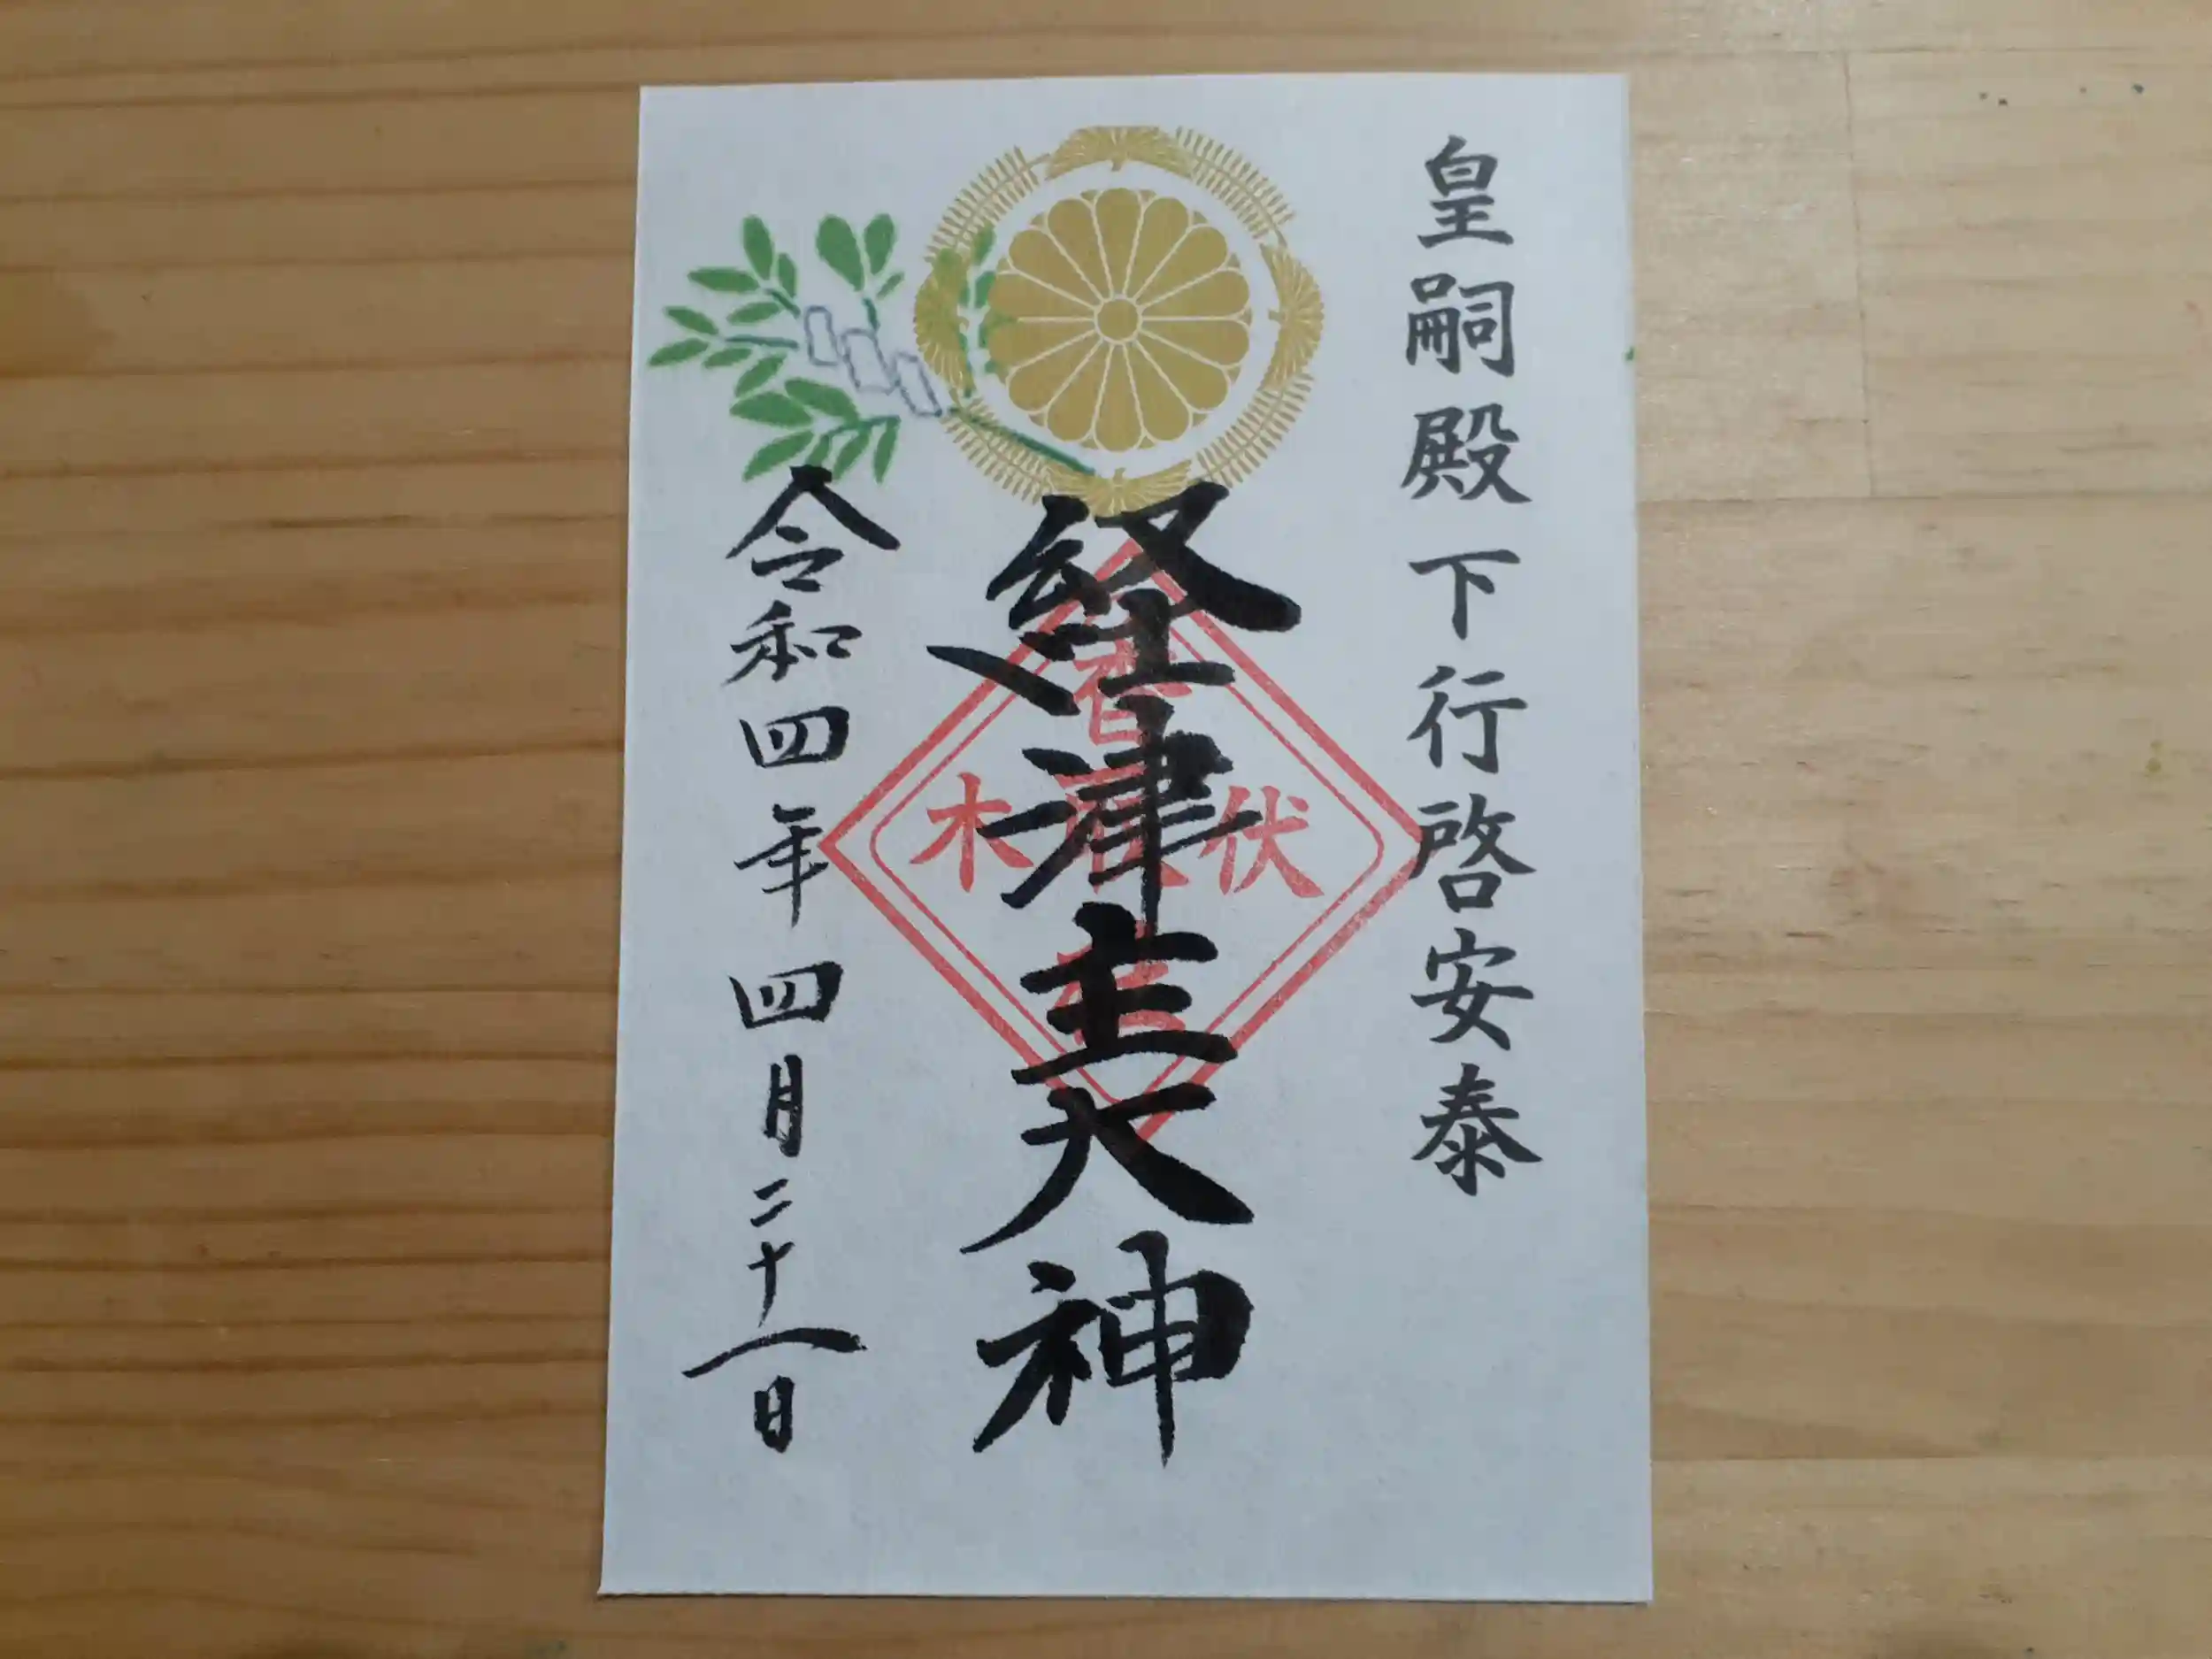 皇嗣殿下行啓安泰
経津主大神
令和四年四月二十一日
伏
木